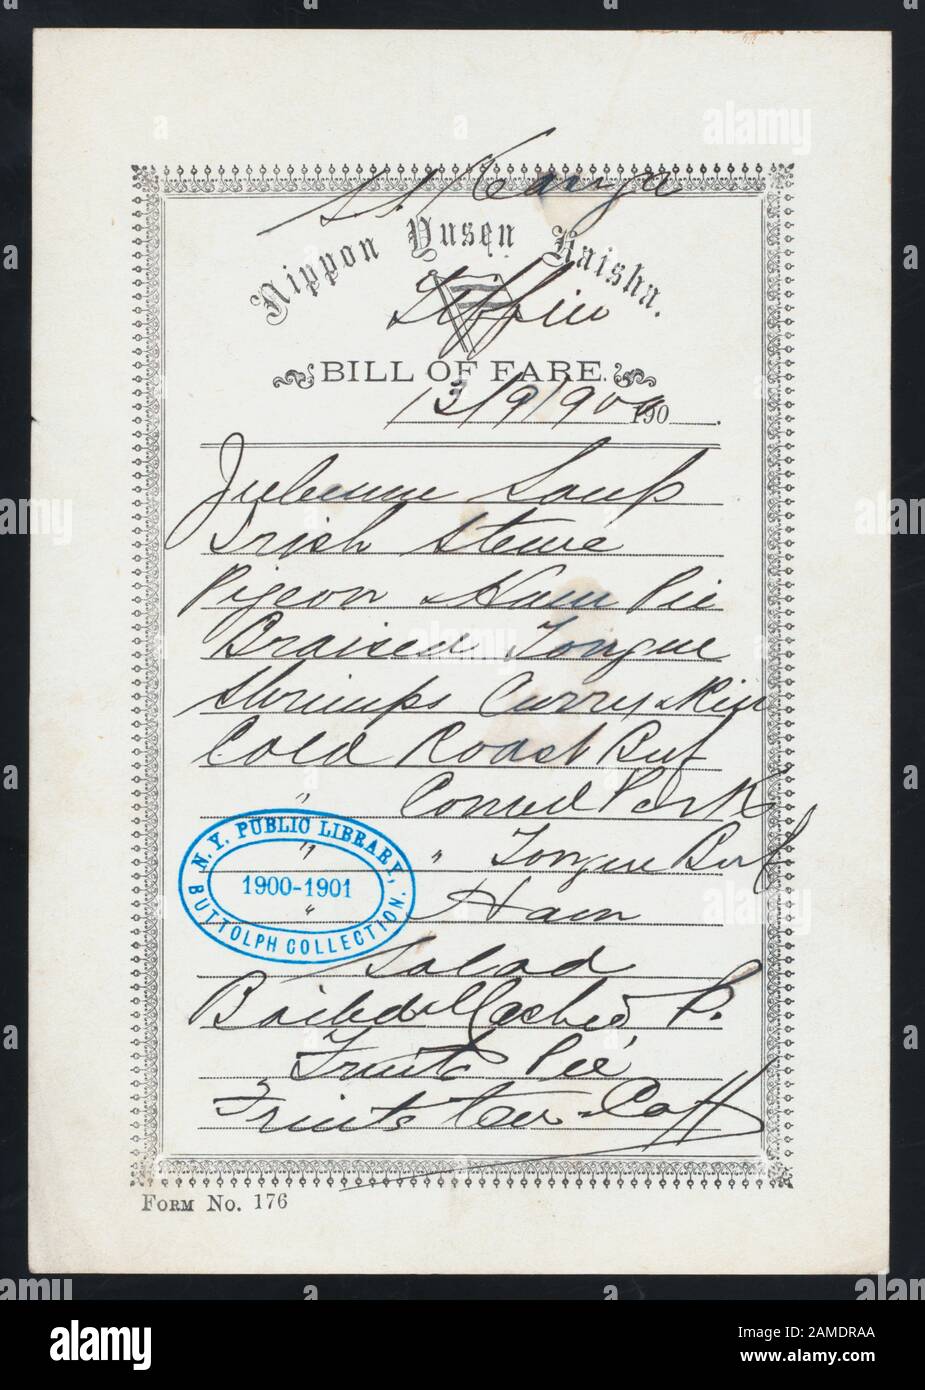 S.S. Kaiga
Nippon Yusen Kaisha.
Tiffin
BILL OF FARE.
13/9/1900 190
Julienne Soup
Irish Stewe
Pigeon & Ham Pie
Braised Tongue
Shrimps Curry & Rice
Cold Roast Beef
" Corned Pork
" " Tongue Beef
" Ham
Salad
Boiled & Mashed P.
Fruits Pie
Fruits Tea & Coff
N. Y. PUBLIC LIBRARY,
1900-1901
BUTTOLPH COLLECTION.
FORM No. 176
alamy
Image ID: 2AMDRAA
www.alamy.com